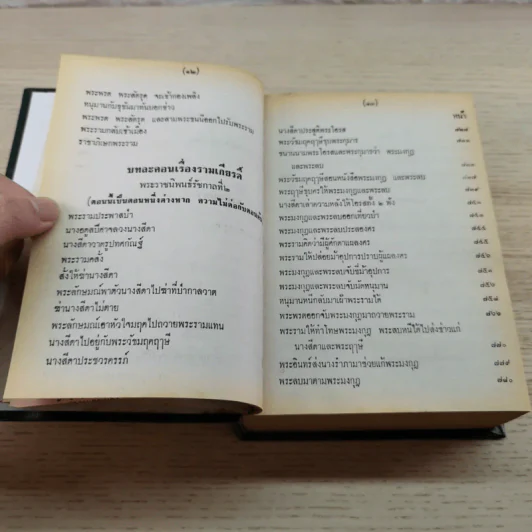 (๑๒)
พระพรต พระสัตรุด จะเข้ากองเพลิง
หนุมานกับขุขันมาทันบอกข่าว
พระพรต พระสัตรุด และสามพระชนนีออกไปรับพระราม
พระรามกลับเข้าเมือง
ราชาภิเษกพระราม
บทละคอนเรื่องรามเกียรติ์
พระราชนิพนธ์รัชกาลที่๒
(ตอนนี้เป็นตอนหนึ่งต่างหาก ความไม่ต่อกับตอนต้น
พระรามประพาสป่า
นางอดูลปีศาจลวงนางสีดา
นางสีดาวาดรูปทศกัณฐ์
พระรามคลั่ง
สั่งให้ฆ่านางสีดา
พระลักษมณ์พาตัวนางสีดาไปฆ่าที่ป่ากาลวาต
ฆ่านางสีดาไม่ตาย
พระลักษมณ์เอาหัวใจมฤคไปถวายพระรามแทน
นางสีดาไปอยู่กับพระวัชมฤคฤๅษี
นางสีดาประชวรครรภ์
(๑๓)
หน้า
นางสีดาประสูติพระโอรส
พระวัชมฤคฤๅษีชุบพระกุมาร
ขนานนามพระโอรสและพระกุมารว่า พระมงกุฎ
และพระลบ
พระวัชมฤคฤๅษีสอนหนังสือพระมงกุฎ และพระลบ
พระฤๅษีชุบศรให้พระมงกุฎและพระลบ
นางสีดาเล่าความหลังให้โอรสทั้ง ๒ ฟัง
พระมงกุฎและพระลบออกเที่ยวป่า
พระมงกุฎและพระลบประลองศร
พระรามคิดว่ามีผู้ศักดาแผลงศร
พระรามให้ปล่อยม้าอุปการปราบผู้แผลงศร
พระมงกุฎและพระลบจับขี่ม้าอุปการ
พระมงกุฎและพระลบจับมัดหนุมาน
หนุมานหนีกลับมาเฝ้าพระรามให้
พระพรตออกจับพระมงกุฎมาถวายพระราม
พระรามให้ทำโทษพระมงกุฎ พระลบหนีได้ไปส่งข่าวแก่
นางสีดาและพระฤๅษี ๘๗๘
พระอินทร์ส่งนางรำภามาช่วยแก้พระมงกุฎ ๘๗๙
พระลบมาตามพระมงกุฎ